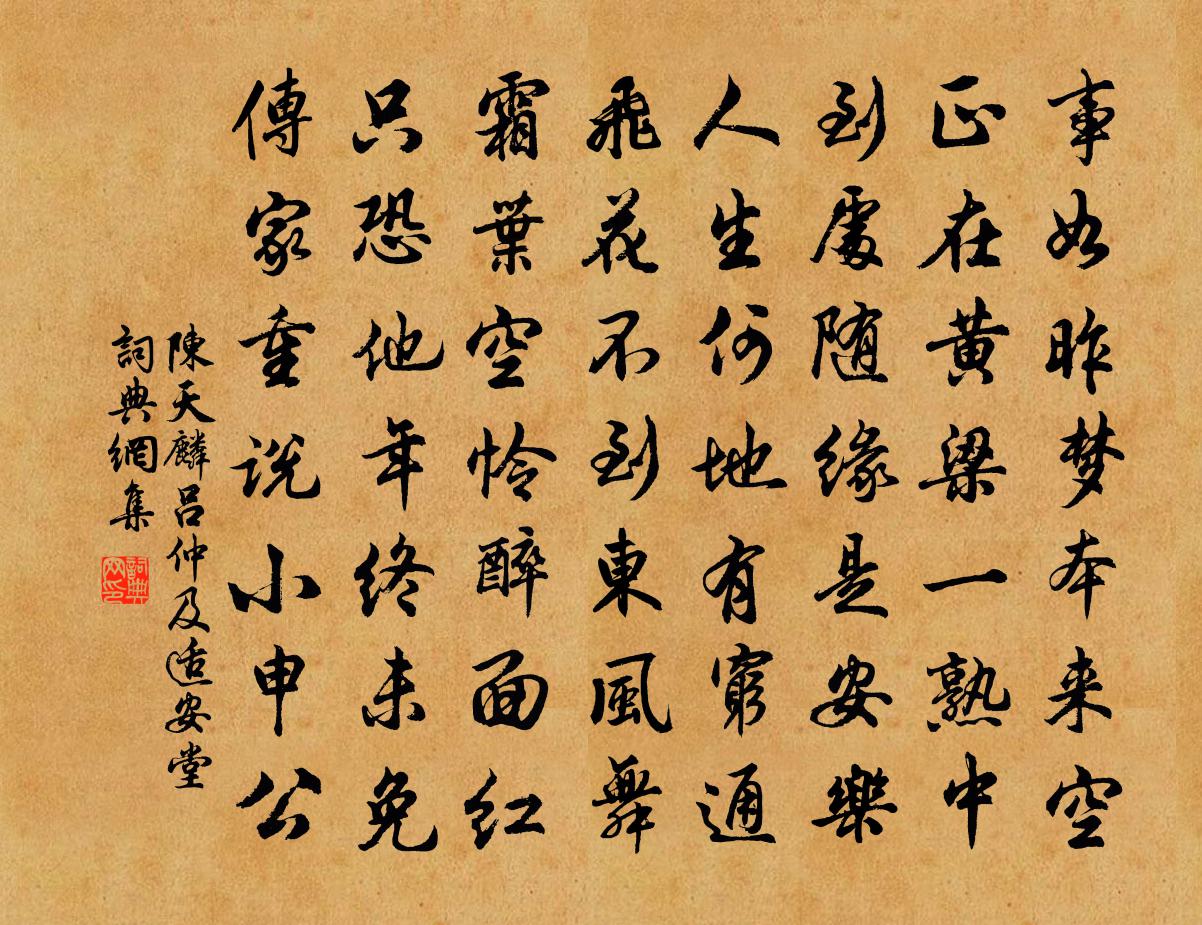 事如昨梦本来空
正在黄粱一熟中
到處随缘是安樂
人生何地有窮通
飛花不到東風舞
霜葉空怜醉面红
只恐他年终未免
傳家重说小申公
陳天麟吕仲及适安堂
詞典網集
詞典网印